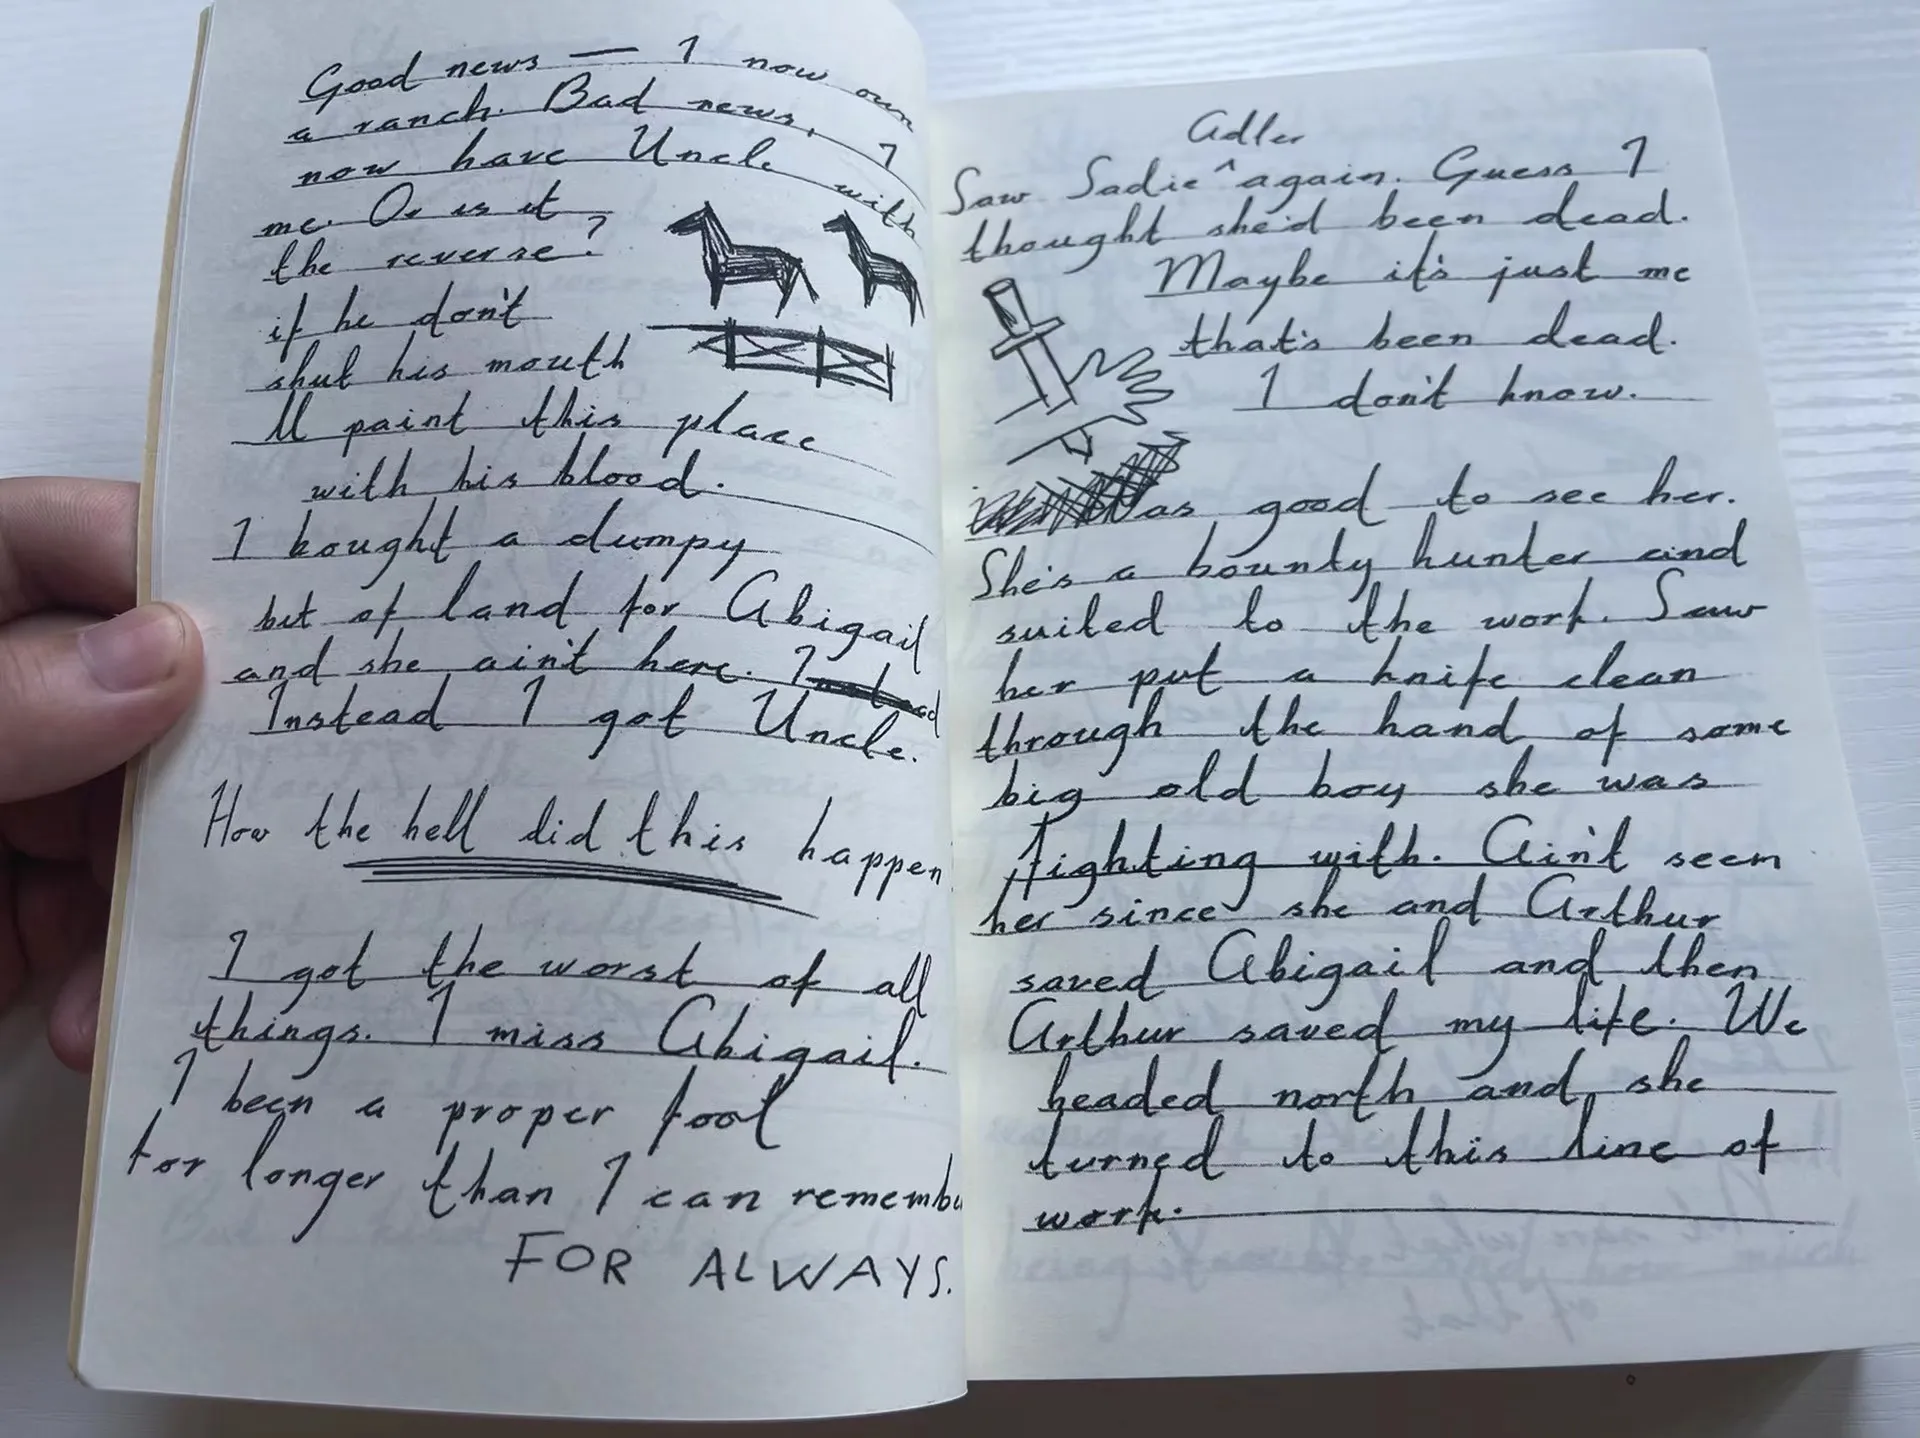 Good news — I now own
a ranch. Bad news, I
now have Uncle with
me. Or is it
the reverse?
if he don't
shut his mouth
I'll paint this place
with his blood.
I bought a dumpy
bit of land for Abigail
and she ain't here. Instead
Instead I got Uncle.
How the hell did this happen
I got the worst of all
things. I miss Abigail.
I been a proper fool
for longer than I can remember
FOR ALWAYS.
Adler
Saw Sadie ^ again. Guess I
thought she'd been dead.
Maybe it's just me
that's been dead.
I don't know.
Was good to see her.
She's a bounty hunter and
suited to the work. Saw
her put a knife clean
through the hand of some
big old boy she was
fighting with. Ain't seem
her since she and Arthur
saved Abigail and then
Arthur saved my life. We
headed north and she
turned to this line of
work.